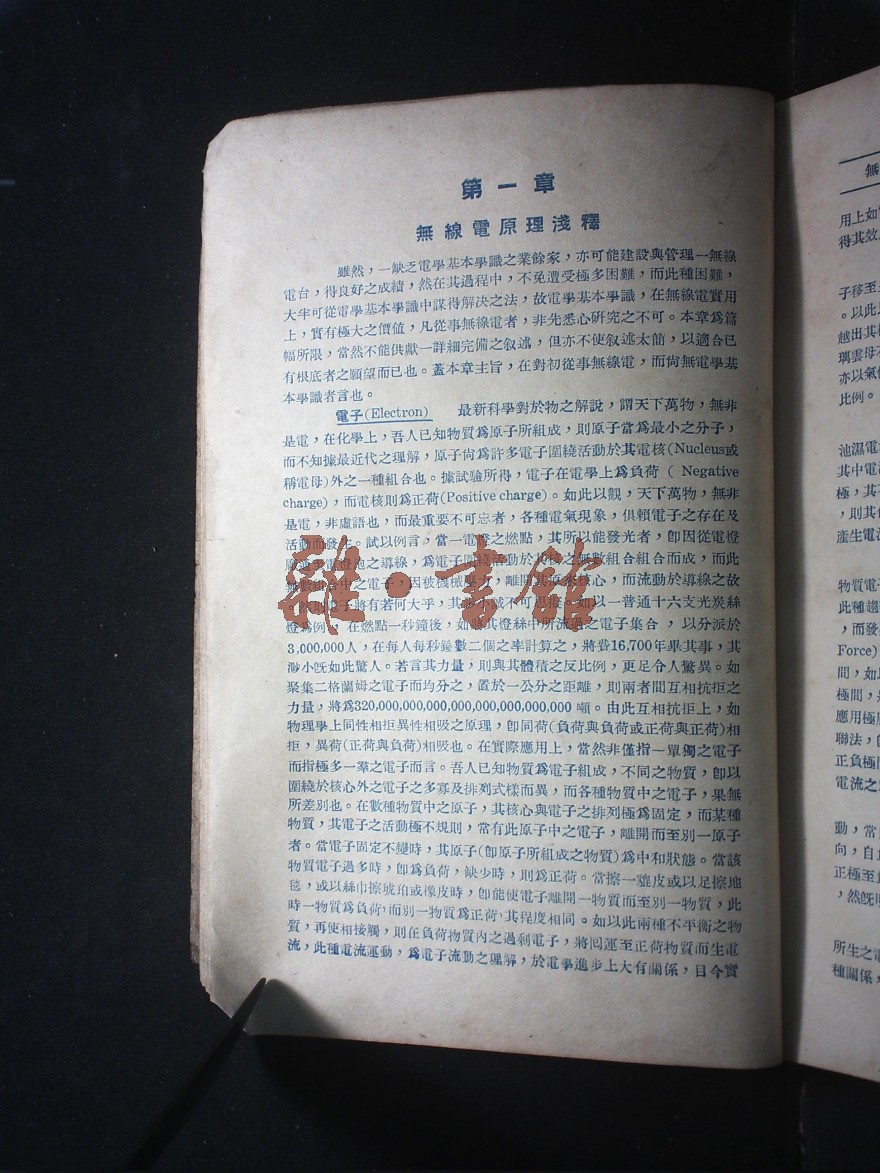 第一章
無線電原理淺釋
雖然，一缺乏電學基本學識之業餘家，亦可能建設與管理一無線
電台，得良好之成績，然在其過程中，不免遭受極多困難，而此種困難，
大半可從電學基本學識中謀得解決之法，故電學基本學識，在無線電實用
上，實有極大之價值，凡從事無線電者，非先悉心研究之不可。本章爲篇
幅所限，當然不能供獻一詳細完備之叙述，但亦不使叙述太簡，以適合已
有根底者之願望而已也。蓋本章主旨，在對初從事無線電，而尙無電學基
本學識者言也。
電子(Electron) 最新科學對於物之解說，謂天下萬物，無非
是電，在化學上，吾人已知物質爲原子所組成，則原子當爲最小之分子，
而不知據最近代之理解，原子尙爲許多電子圍繞活動於其電核(Nucleus或
稱電母)外之一種組合也。據試驗所得，電子在電學上爲負荷( Negative
charge)，而電核則爲正荷(Positive charge)。如此以觀，天下萬物，無非
是電，非虛語也，而最重要不可忘者，各種電氣現象，俱賴電子之存在及
活動而發生。試以例言，當一電燈之燃點，其所以能發光者，卽因從電燈
電燈泡之導線，爲電子圍繞活動於核之無數組合組合而成，而此
中之電子，因被機械壓力，離開其原來核心，而流動於導線之故
電子將有若何大乎，其渺小誠不可思議。如以一普通十六支光炭絲
燈爲例，在燃點一秒鐘後，如將其燈絲中所流過之電子集合，以分派於
3,000,000人，在每人每秒鐘數二個之率計算之，將費16,700年畢其事，其
渺小旣如此驚人。若言其力量，則與其體積之反比例，更足令人驚異。如
聚集二格蘭姆之電子而均分之，置於一公分之距離，則兩者間互相抗拒之
力量，將爲320,000,000,000,000,000,000,000,000 噸。由此互相抗拒上，如
物理學上同性相拒異性相吸之原理，卽同荷(負荷與負荷或正荷與正荷)相
拒，異荷(正荷與負荷)相吸也。在實際應用上，當然非僅指一單獨之電子
而指極多一羣之電子而言。吾人已知物質爲電子組成，不同之物質，卽以
圍繞於核心外之電子之多寡及排列式樣而異，而各種物質中之電子，果無
所差別也。在數種物質中之原子，其核心與電子之排列極爲固定，而某種
物質，其電子之活動極不規則，常有此原子中之電子，離開而至別一原子
者。當電子固定不變時，其原子(卽原子所組成之物質)爲中和狀態。當該
物質電子過多時，卽爲負荷，缺少時，則爲正荷。當擦一貍皮或以足擦地
毯，或以絲巾擦琥珀或橡皮時，卽能使電子離開一物質而至別一物質，此
時一物質爲負荷，而別一物質爲正荷，其程度相同。如以此兩種不平衡之物
質，再使相接觸，則在負荷物質內之過剩電子，將回運至正荷物質而生電
流，此種電流運動，爲電子流動之理解，於電學進步上大有關係，目今實
雜·書館
無
用上如
得其效
子移至
。以此
越出其
璃雲母
亦以氣
比例。
池濕電
其中電
極，其
，則其
產生電
物質電
此種趨
，而發
Force)
間，如
極間，
應用極
聯法，
正負極間
電流之
動，常
向，自
正極至
，然旣
所生之電
種關係，